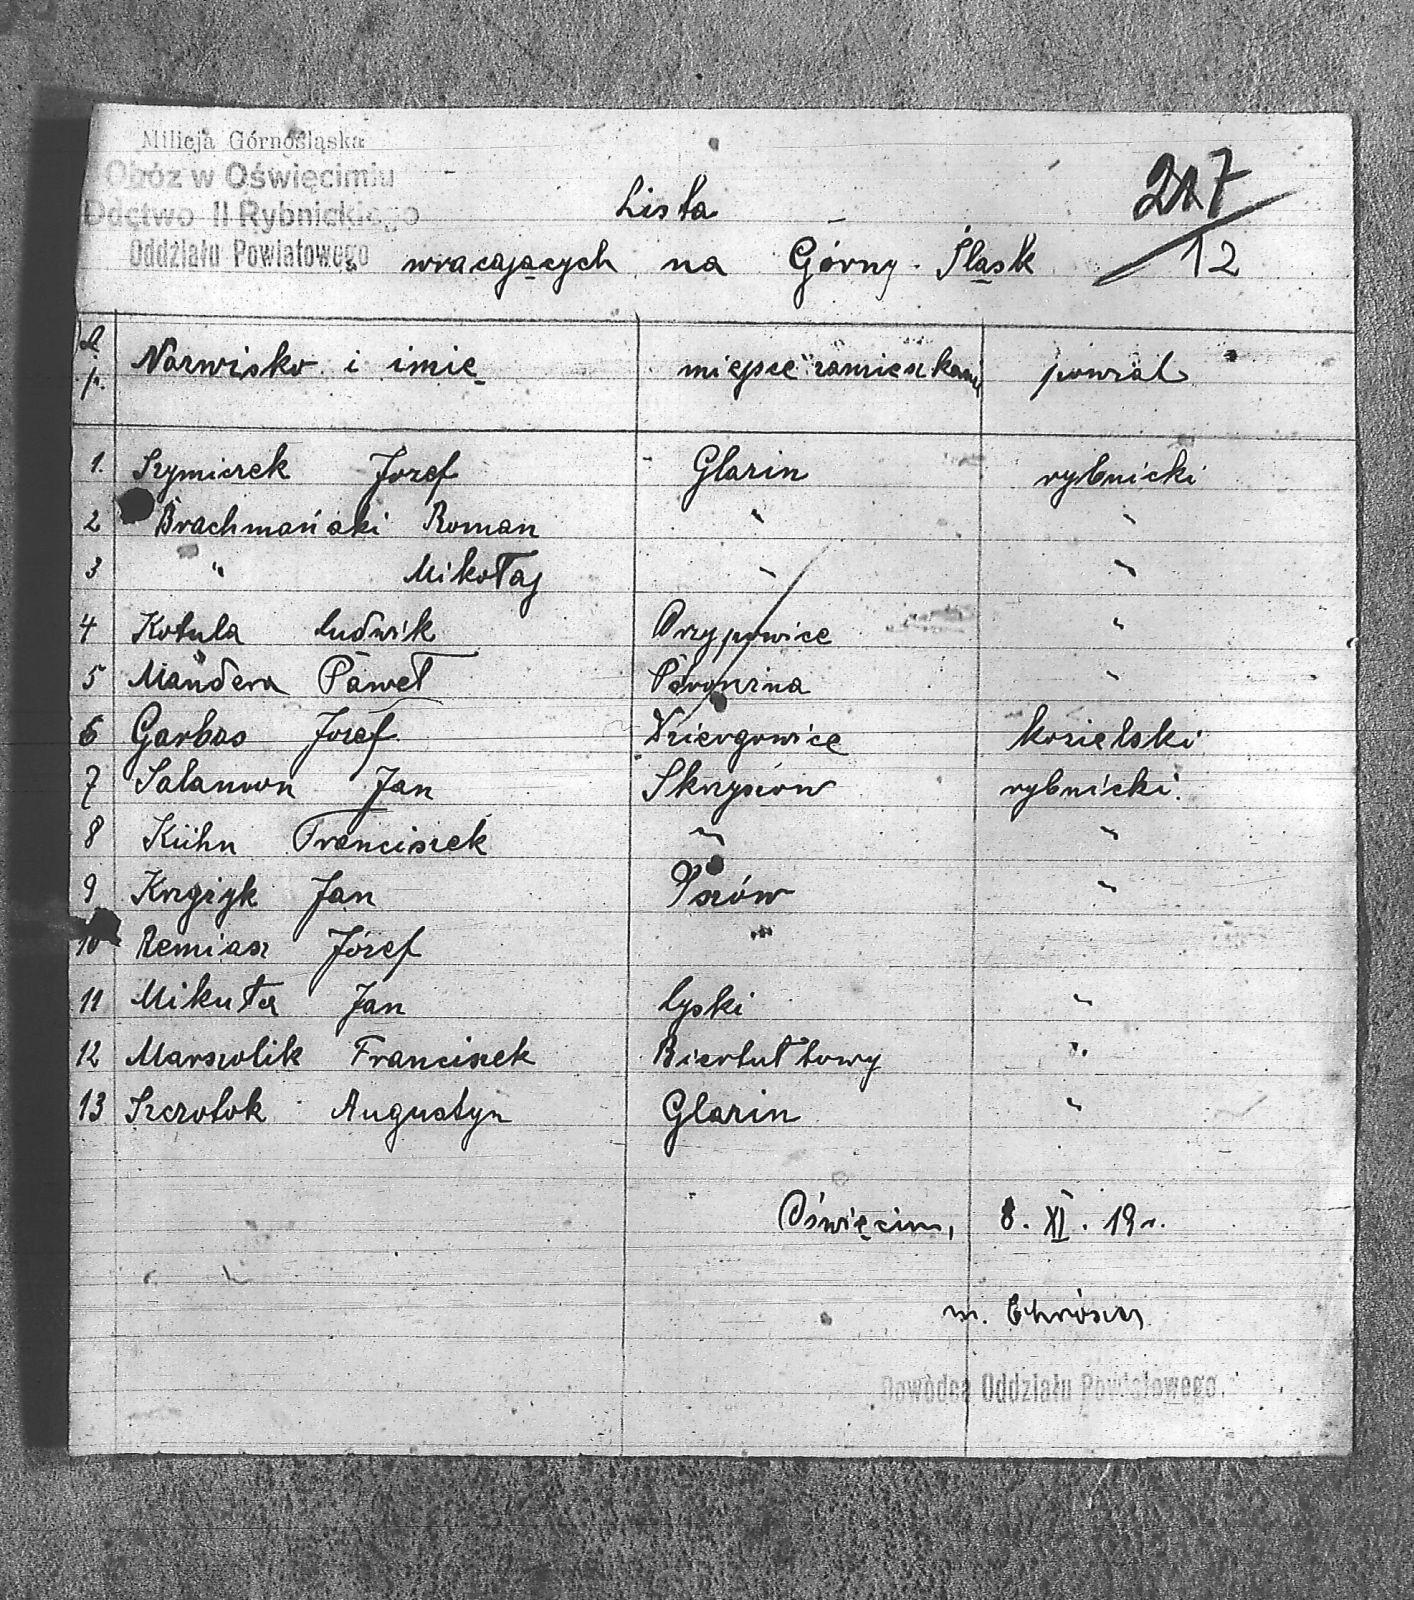 Milicja Górnośląska
Obóz w Oświęcimiu
Ddctwo II Rybnickiego
Oddziału Powiatowego
217
12
Lista
wracających na Górny-Śląsk
L. p. Nazwisko i imię miejsce zamieszkania powiat
1. Szymiczek Jozef Glazin rybnicki
2 Brachmański Roman " "
3 " Mikołaj " "
4 Kotula Ludwik "
5 Mandera Paweł "
6 Garbas Józef Dziergowice kozielski
7 Salamon Jan Skrzyszów rybnicki.
8 Kühn Franciszek " "
9 Krzyżyk Jan Pszów "
10 Remiasz Józef "
11 Mikuła Jan Lyski "
12 Marszolik Franciszek Biertułtowy "
13 Szczotok Augustyn Glazin "
Oświęcim, 8. XI. 19 r.
Dowódca Oddziału Powiatowego